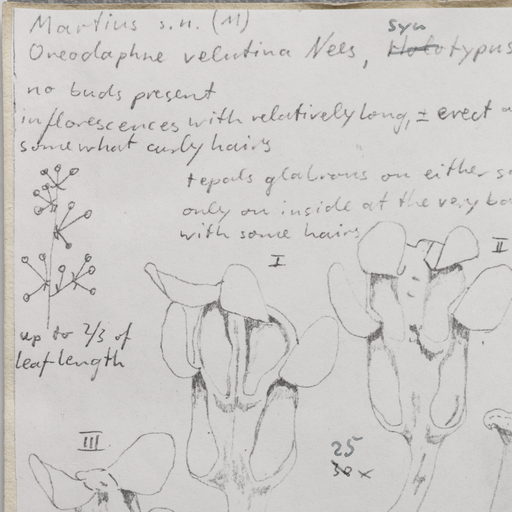 Martius s.n. (M)
Syn
Oreodaphne velutina Nees, Holotypus
no buds present
inflorescences with relatively long, ± erect
somewhat curly hairs
tepals glabrous on either
only on inside at the very
with some hairs
I
II
up to 2/3 of
leaf length
III
25
30 x